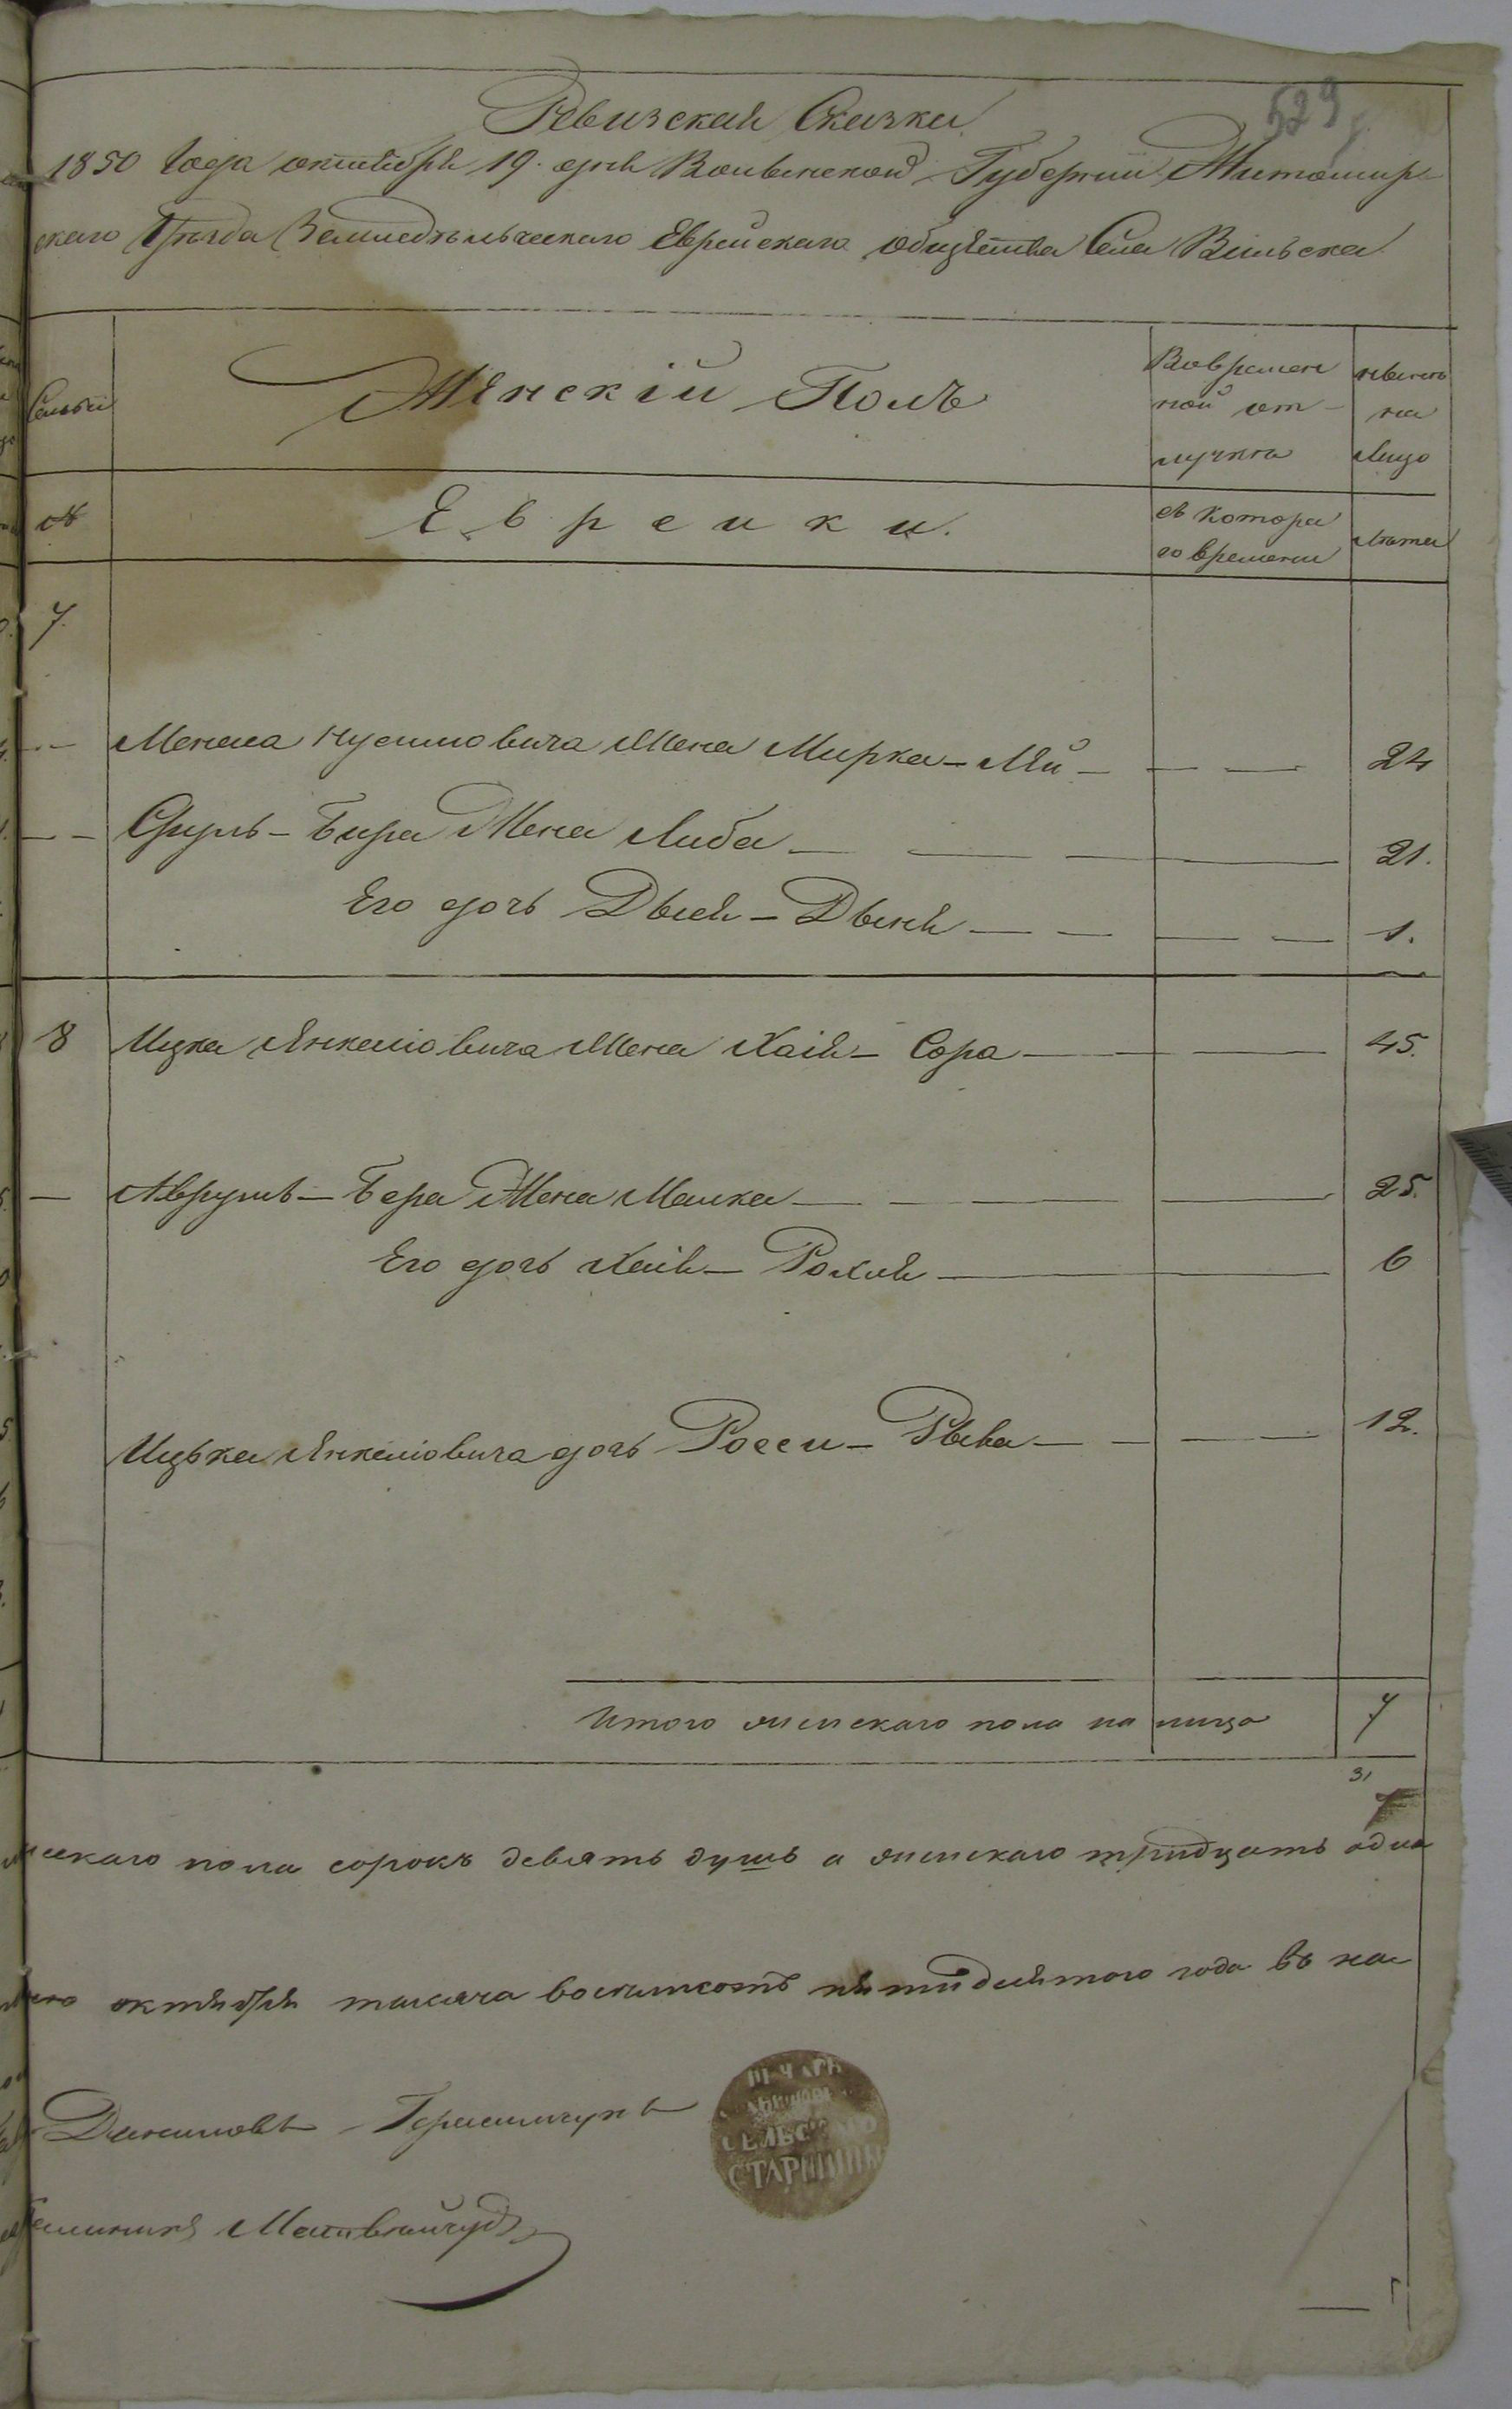 529
Ревизская Сказка
1850 Года октября 19. дня Волынской Губернии Житомир-
скаго Уезда Земледельческаго Еврейскаго общества Села Вильска
Семьи
Женскій Полъ
Вовремен
ной от-
лучке
ныне
на
Лицо
№
Еврейки.
съ котора
го времени
Лета
7.
Жена Мирка-Лея 24
Сруль-Бера Жена Либа 21.
Его дочь Двося-Двейя 1.
8 Ицка Янкеловича Жена Хая-Сора 45.
Аврумъ-Бера Жена Малка 25.
Его дочь Хая-Рохля 6
Ицька Янкеловича дочь Росси-Рыва 12.
Итого женскаго пола на лицо 7
31
7
скаго пола сорокъ девять душъ а женскаго тридцать одна
октября тысяча восемьсотъ пятидесятого года въ
Данимовъ Герасимчукъ
ПЕЧАТЬ
СЕЛЬСКАГО
СТАРШИНЫ